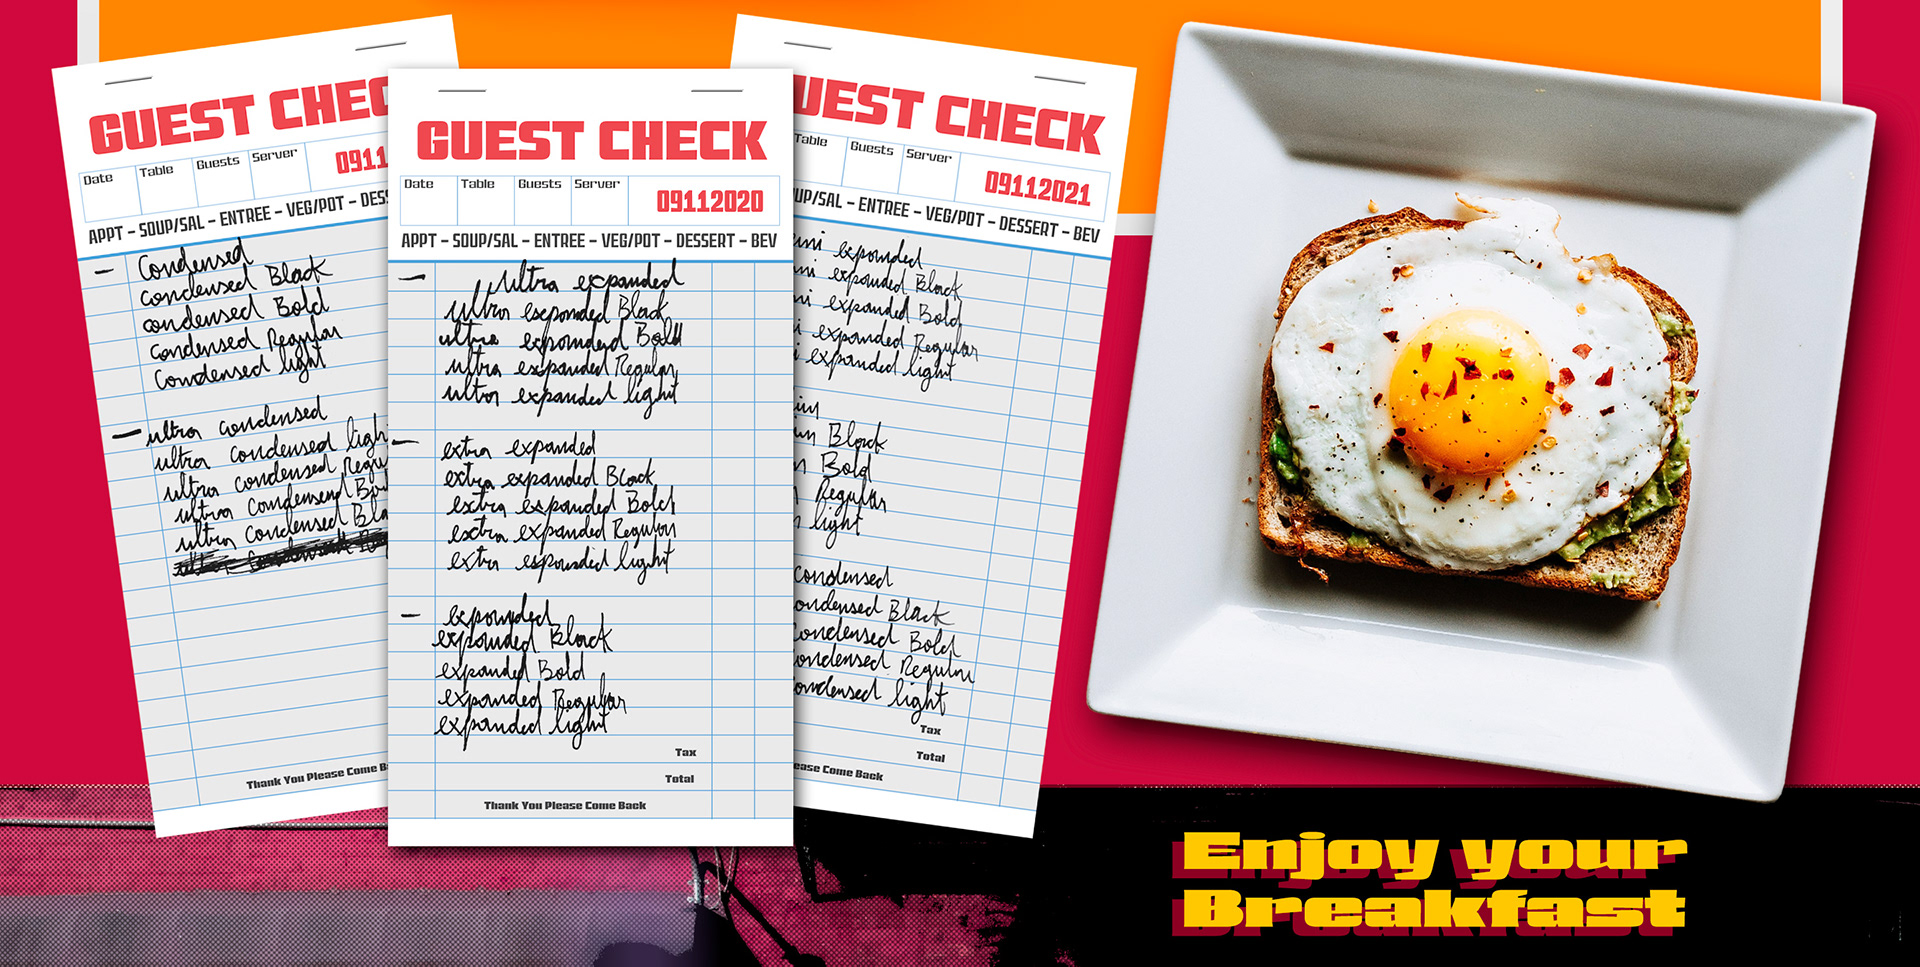 GUEST CHEC
Date Table Guests Server 0911
APPT - SOUP/SAL - ENTREE - VEG/POT - DESS
- Condensed
condensed Black
condensed Bold
condensed Regular
Condensed light
- ultra condensed
ultra condensed ligh
ultra condensed Regu
ultra condensed Bo
ultra condensed Bla
Thank You Please Come B
GUEST CHECK
Date Table Guests Server 09112020
APPT - SOUP/SAL - ENTREE - VEG/POT - DESSERT - BEV
- ultra expanded
ultra expanded Black
ultra expanded Bold
ultra expanded Regular
ultra expanded light
- extra expanded
extra expanded Black
extra expanded Bold
extra expanded Regular
extra expanded light
- expanded
expanded Black
expanded Bold
expanded Regular
expanded light
Tax
Total
Thank You Please Come Back
UEST CHECK
Table Guests Server 09112021
UP/SAL - ENTREE - VEG/POT - DESSERT - BEV
expanded
expanded Black
expanded Bold
expanded Regular
expanded light
Black
Bold
Regular
light
Condensed
ondensed Black
Condensed Bold
ondensed Regular
ondensed light
Tax
Total
ease Come Back
Enjoy your
Breakfast